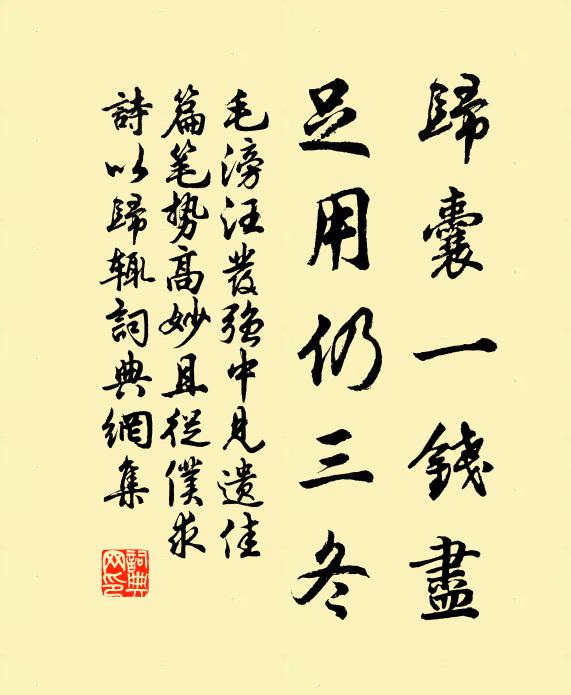 歸囊一錢盡
足用仍三冬
毛滂汪發強中見遺佳
篇笔势高妙且從僕求
詩以歸輒詞典網集
詞典网印